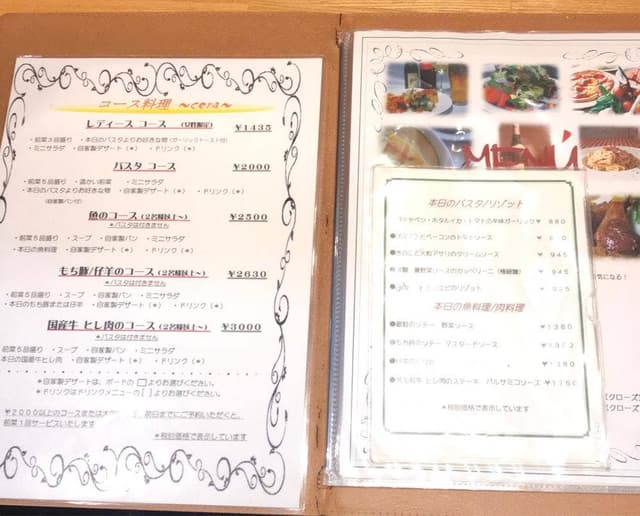 コース料理 ～cena～
レディース コース (女性限定) ￥1435
・前菜３品盛り ・本日のパスタよりお好きな物 (ガーリックトースト付)
・ミニサラダ ・自家製デザート（＊） ・ドリンク（＊）
パスタ コース ￥2000
・前菜５品盛り ・温かい前菜 ・ミニサラダ
・本日のパスタよりお好きな物 ・自家製デザート（＊） ・ドリンク（＊）
(自家製パン付)
魚のコース (２名様以上～) ￥2500
＊パスタは付きません
・前菜５品盛り ・スープ ・自家製パン ・ミニサラダ
・本日の魚料理 ・自家製デザート（＊） ・ドリンク（＊）
もち豚/仔羊のコース (２名様以上～) ￥2630
＊パスタは付きません
・前菜５品盛り ・スープ ・自家製パン ・ミニサラダ
・本日のもち豚または仔羊 ・自家製デザート（＊） ・ドリンク（＊）
国産牛 ヒレ肉のコース (２名様以上～) ￥3000
＊パスタは付きません
前菜５品盛り ・スープ ・自家製パン ・ミニサラダ
本日の国産牛ヒレ肉 ・自家製デザート（＊） ・ドリンク（＊）
＊自家製デザートは、ボードの□よりお選びください。
＊ドリンクはドリンクメニューの[ ]よりお選びください。
￥２０００以上のコースまたは 前日までにご予約いただくと、
前菜１品サービスいたします
＊税別価格で表示しています
MENÚ
本日のパスタ/リゾット
キャベツ・ホタルイカ・トマトの辛味ガーリック ￥ 880
ベーコンのトマトソース
●きのこと大粒アサリのクリームソース ￥ 945
夏野菜ソースのカッペリーニ (極細麺) ￥ 945
リゾット
本日の魚料理/肉料理
のソテー 野菜ソース ￥1380
●もち豚のソテー マスタードソース
ヒレ肉のステーキ バルサミコソース ￥1760
＊税別価格で表示しています
気になる！
【クローズ
【クローズ